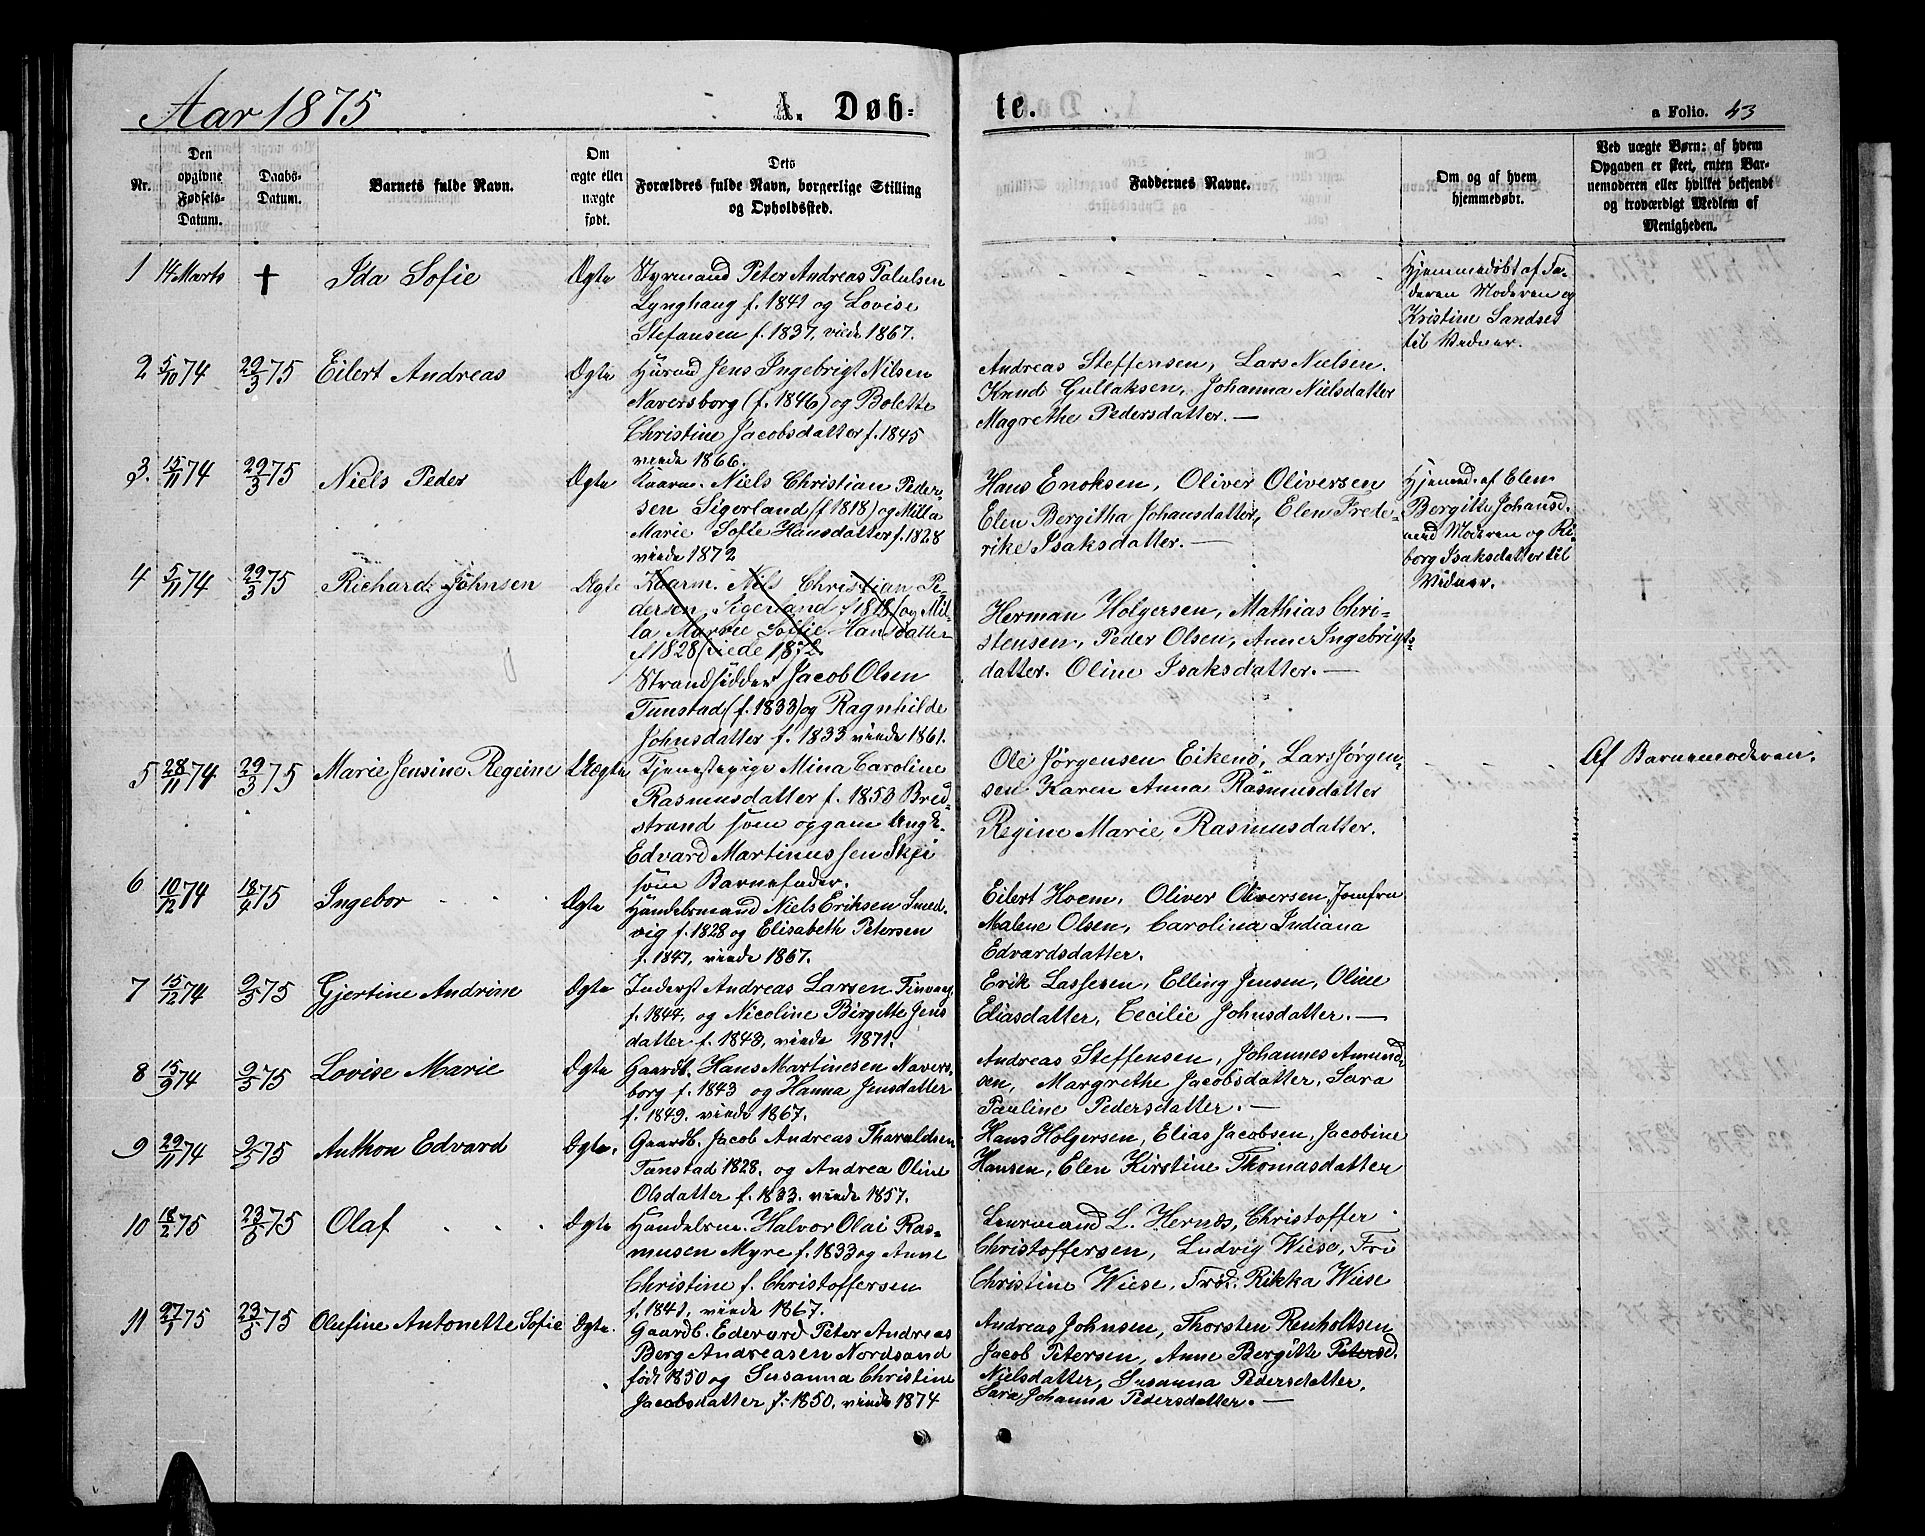 Aar 1875
A. Døb-
te.
a Folio. 43
Nr.
Den
opgivne
Fødsels-
Datum.
Daabs-
Datum.
Barnets fulde Navn.
Om
ægte eller
uægte
født.
Dets
Forældres fulde Navn, borgerlige Stilling
og Opholdssted.
Faddernes Navne.
Om og af hvem
hjemmedøbt.
Ved uægte Børn: af hvem
Opgaven er skeet, enten Bar-
nemoderen eller hvilket bekjendt
og troværdigt Medlem af
Menigheden.
1 14 Marts † Ida Sofie Ægte
Styrmand Peter Andreas Palulsen
Lynghaug f. 1841 og Lovise
Stefansen f. 1837, viede 1867.
Hjemmedøbt af Fa-
deren Moderen og
Kristine Sandses
til Vidner.
2 5/10 74 29/3 75 Eilert Andreas Ægte
Huusd Jens Ingebrigt Nilsen
Naversborg (f. 1846) og Bolette
Christine Jacobsdatter f. 1845
viede 1866.
Andreas Steffensen, Lars Nielsen.
Knud Gullaksen, Johanna Nielsdatter
Magrethe Pedersdatter. —
3. 15/11 74 29/3 75 Niels Peder Ægte
Kaarm. Niels Christian Peder-
sen Sigerland (f 1818) og Milla
Marie Sofie Hansdatter f. 1828
viede 1872
Hans Enoksen, Oliver Oliversen
Elen Bergitha Johansdatter, Elen Frede-
rike Isaksdatter. —
Hjemmd. af Elen
Bergitte Johansd.
med Moderen og Ri-
borg Isaksdatter til
Vidner.
4 5/11 74 29/3 75 Richard Johnsen Ægte
Kaarm. Nils Christian Pe-
dersen, Sigerland f 1818 (og Mil-
la Marie Sofie Hansdatter
f 1828 (viede 1872
Strandsidder Jacob Olsen
Tunstad (f. 1833) og Ragnhilde
Johnsdatter f. 1833 viede 1861.
Herman Holgersen, Mathias Chri-
stensen, Peder Olsen, Anne Ingebrigt-
datter. Oline Isaksdatter. —
5 28/11 74 29/3 75 Marie Jensine Regeine Uægte
Tjenestepige Mina Caroline
Rasmusdatter f. 1853 Bred-
strand som opgav Ungk.
Edvard Martinussen Skjei
som Barnefader.
Ole Jørgensen Eikenø, Lars Jørgen-
sen Karen Anna Rasmusdatter
Regine Marie Rasmusdatter.
Af Barnemoderen.
6 10/12 74 18/4 75 Ingebor Ægte
Handelsmand Niels Eriksen Smed-
vig f. 1828 og Elisabeth Petersen
f. 1847, viede 1867.
Eilert Hoem, Oliver Oliversen, Jomfru
Malene Olsen, Carolina Indiana
Edvardsdatter.
7 15/12 74 9/5 75 Gjertine Andrine Ægte
Inderst Andreas Larsen Finvaag,
f. 1844, og Nicoline Birgitte Jens
datter f. 1843, viede 1871.
Erik Lassesen, Elling Jensen, Oline
Eliasdatter, Cecilie Johnsdatter. —
8 15/9 74 9/5 75 Lovise Marie Ægte
Gaardb. Hans Martinesen Navers-
borg f. 1843 og Hanna Jensdatter
f. 1849. viede 1867.
Andreas Steffensen, Johannes Amund-
sen, Margrethe Jacobsdatter, Sara
Pauline Pedersdatter. —
9 29/11 74 9/5 75 Anthon Edvard Ægte.
Gaardb. Jacob Andreas Tharaldsen
Tanstad 1828. og Andrea Oline
Olsdatter f. 1833. viede 1857.
Hans Holgersen, Elias Jacobsen, Jacobine
Hansen, Elen Kirstine Thomasdatter
10 18/2 75 23/5 75 Olaf Ægte
Handelsm. Halvor Olai Ras-
musen Myre f. 1833 og Anne
Christine f. Christoffersen
f. 1841, viede 1867.
Leurmand L. Hernes, Christoffer
Christoffersen, Ludvig Wiese, Fru
Christine Wiese, Frøk. Rikka Wiese
11 27/1 75 23/5 75 Olufine Antonette Sofie Ægte.
Gaardb. Edevard Peter Andreas
Berg Andreasen Nordsand
født 1850 og Susanna Christine
Jacobsdatter, f. 1850, viede 1874
Andreas Johnsen, Thorsten Renholtsen
Jacob Petersen, Anne Bergitte Petersd.
Nielsdatter, Susanna Pedersdatter,
Sara Johanna Pedersdatter. —